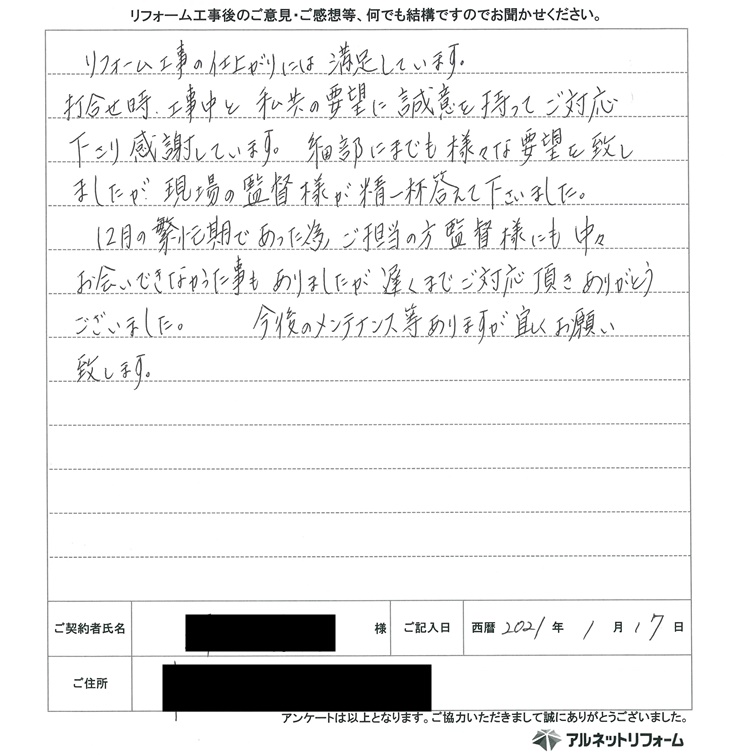 リフォーム工事後のご意見・ご感想等、何でも結構ですのでお聞かせください。
リフォーム工事の仕上がりには満足しています。
打合せ時、工事中と私共の要望に誠意を持ってご対応
下さり感謝しています。細部にまでも様々な要望を致し
ましたが現場の監督様が精一杯答えて下さいました。
12月の繁忙期であった為、ご担当の方監督様にも中々
お会いできなかった事もありましたが遅くまでご対応頂きありがとう
ございました。 今後のメンテナンス等ありますが宜しくお願い
致します。
ご契約者氏名 様 ご記入日 西暦 2021年 1月 17日
ご住所
アンケートは以上となります。ご協力いただきまして誠にありがとうございました。
アルネットリフォーム